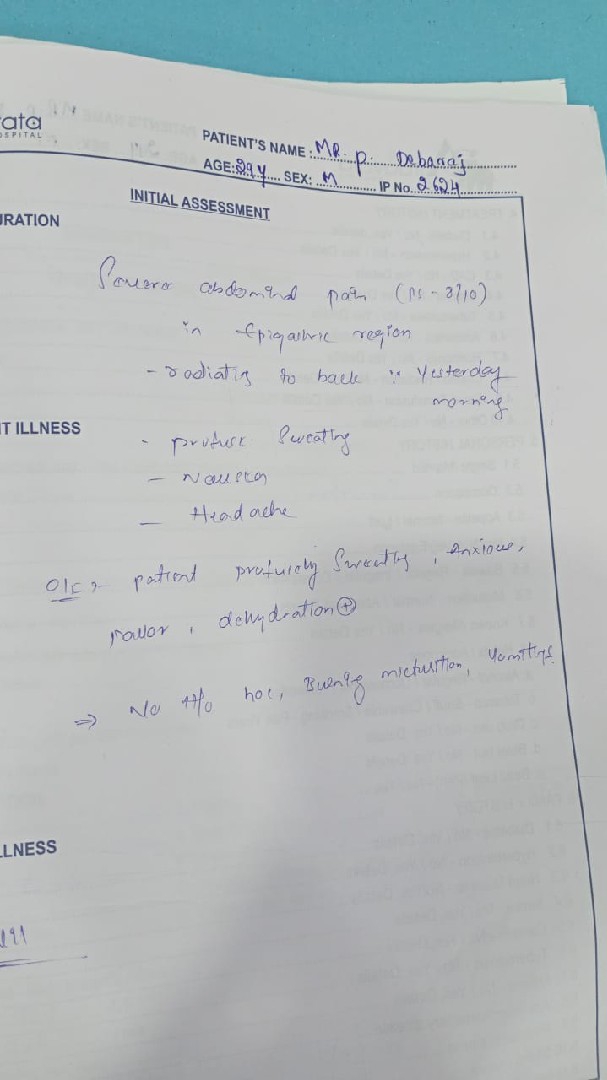 ata
OSPITAL
PATIENT'S NAME: MR. P. Debaraj
AGE: 29Y SEX: M IP No. 2624
INITIAL ASSESSMENT
URATION
Severe abdominal pain (PS - 8/10)
in Epigastric region
- radiating to back :: Yesterday
morning
T ILLNESS
- profuse Sweating
- Nausea
- Headache
O/E patient profusely Sweating, Anxious,
pallor, dehydration ⊕
⇒ No H/o LOC, Burning micturition, Vomitings
LNESS